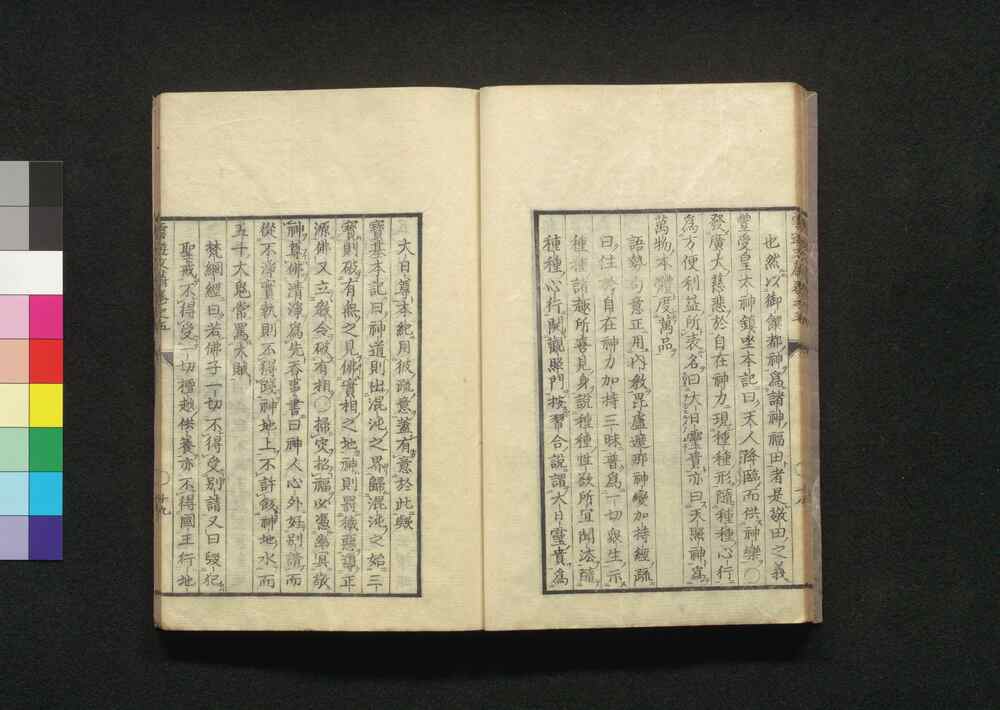 也然以御饌都神為諸神福田者是敬田之義
豐受皇太神鎮坐本記曰天人降臨而供神樂〇
發廣大慈悲於自在神力現種種形隨種種心行
為方便利益所表名曰大日孁貴亦曰天照神為
萬物本體度萬品
語勢句意正用內教毘盧遮那神變加持經疏
曰住於自在神力加持三昧普為一切眾生示
種種諸趣所喜見身說種種性欲所宜聞法隨
種種心行開觀照門故習合說謂大日孁貴為
大日尊本紀用彼疏意蓋有意於此歟
寶基本記曰神道則出混沌之界歸混沌之始三
寶則破有無之見佛實相之地神則罰穢惡導正
源佛又立教令破有相〇掃灾招福必憑幣具敬
神尊佛清淨為先春事書曰神人心外好別請而
從不淨實執則不得踐神地上不許飲神地水而
五千大鬼常罵大賊
梵網經曰若佛子一切不得受別請又曰毀犯
聖戒不得受一切檀越供養亦不得國王行地
十九